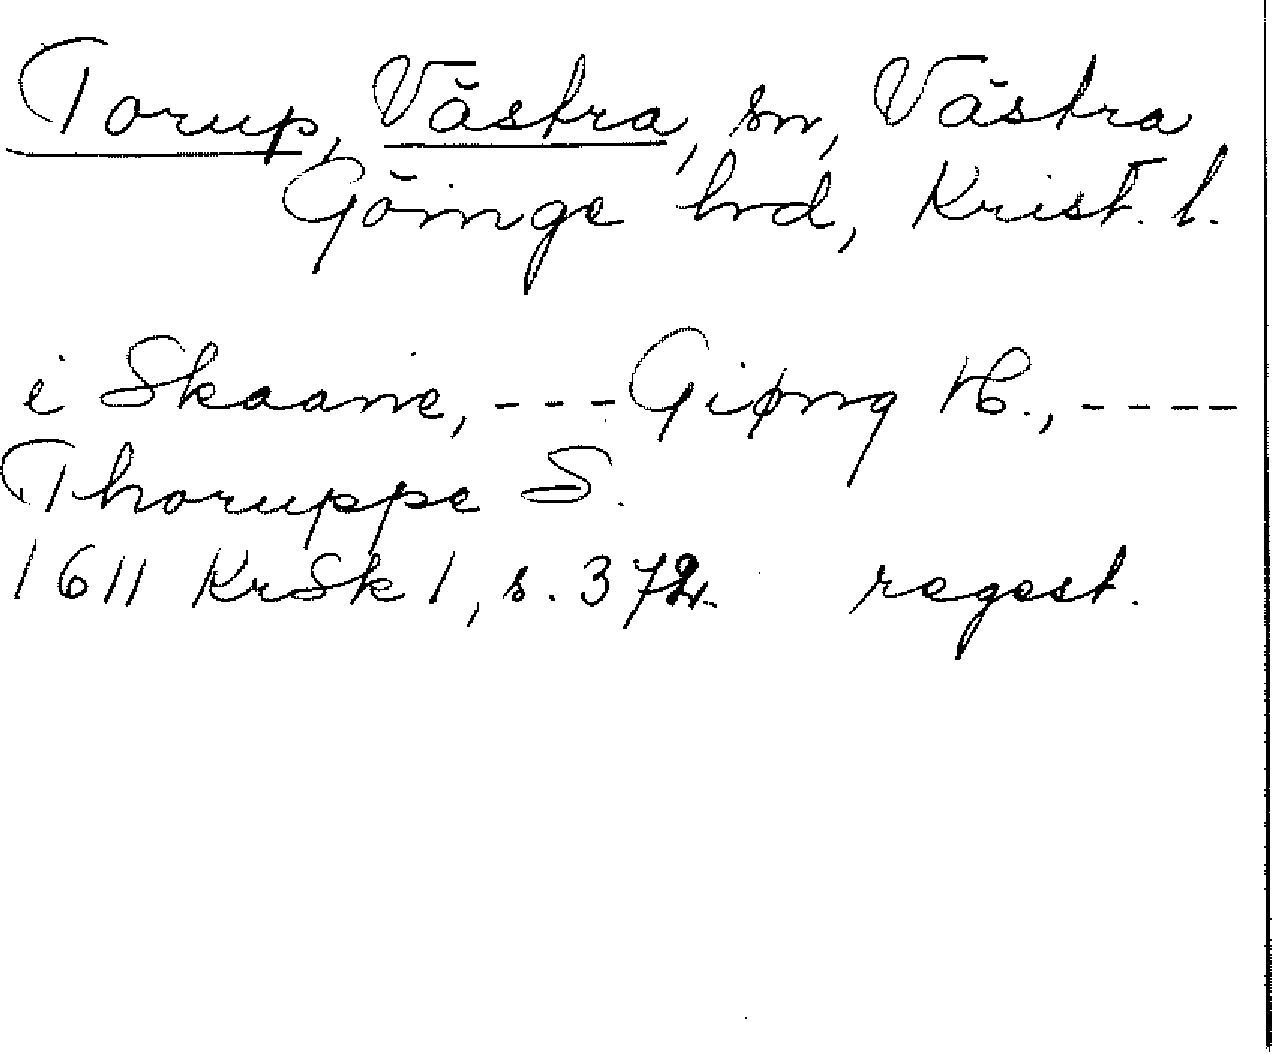 Torup, Västra, sn, Västra
Göinge hrd, Krist. l.
i Skaane, --- Giøng H., ----
Thoruppe S.
1611 KrSk 1, s. 372. regest.